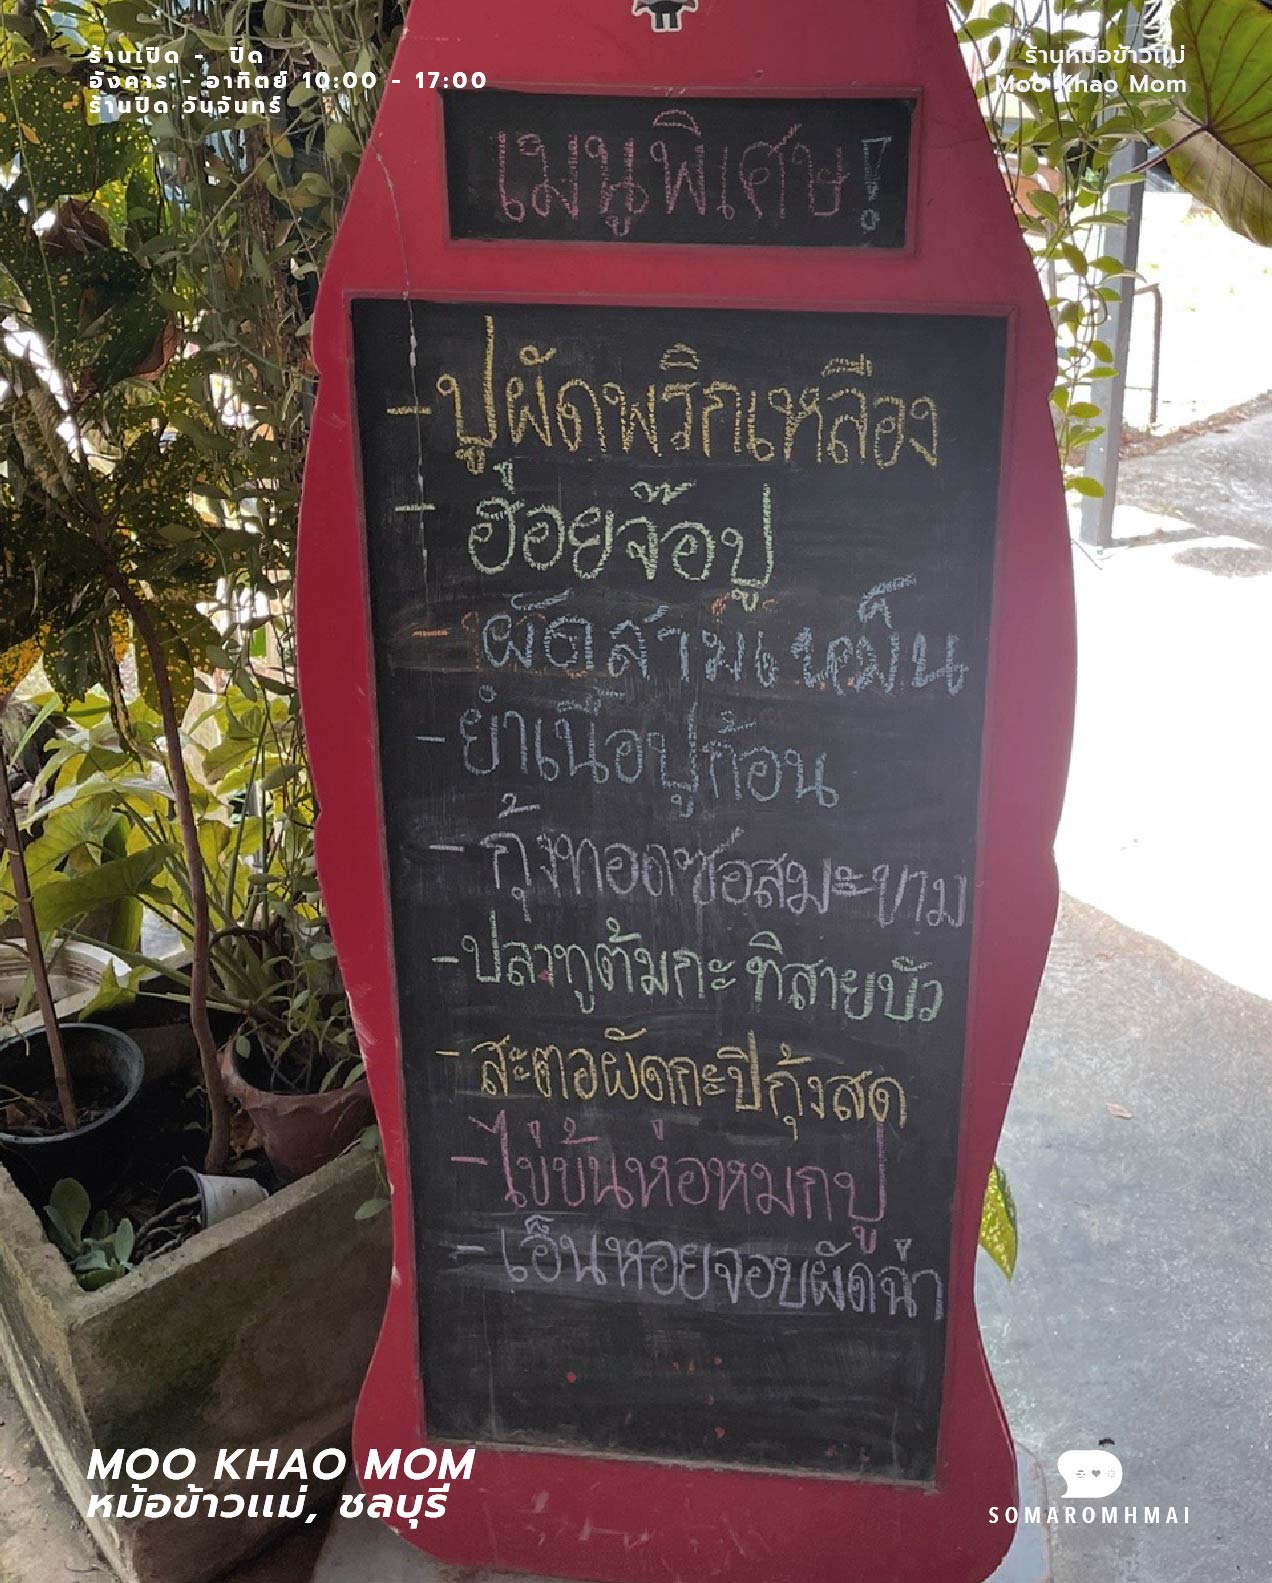 ร้านเปิด - ปิด
อังคาร - อาทิตย์ 10:00 - 17:00
ร้านปิด วันจันทร์
ร้านหม้อข้าวแม่
Moo Khao Mom
เมนูพิเศษ!
- ปูผัดพริกเหลือง
- ฮ่อยจ๊อปู
- ผัดสามเหม็น
- ยำเนื้อปูก้อน
- กุ้งทอดซอสมะขาม
- ปลาทูต้มกะทิสายบัว
- สะตอผัดกะปิกุ้งสด
- ไข่ข้นห่อหมกปู
- เอ็นหอยจอบผัดฉ่า
MOO KHAO MOM
หม้อข้าวแม่, ชลบุรี
SOMAROMHMAI